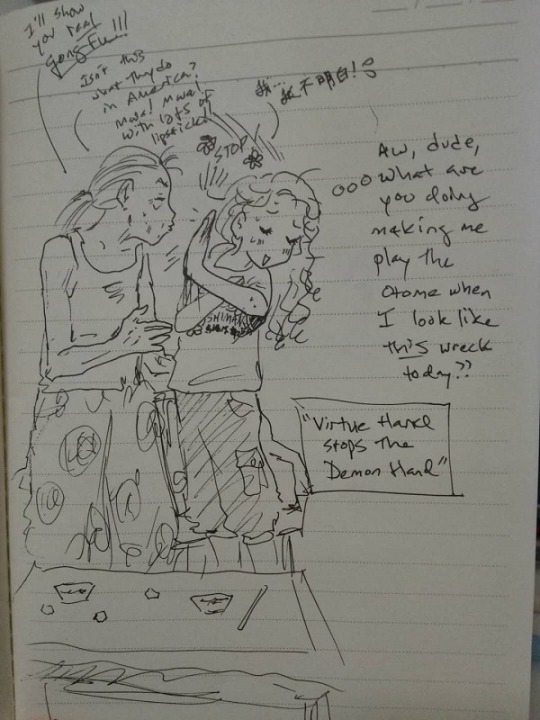 I'll show
you real
gong Fu!!!
Isn't this
what they do
in America?
Mwa! Mwa!
with lots of
lipstick!
我...
我不明白!
STOP
Aw, dude,
what are
you doing
making me
play the
otome when
I look like
this wreck
today??
SHIMA
"Virtue Hand
stops the
Demon Hand"